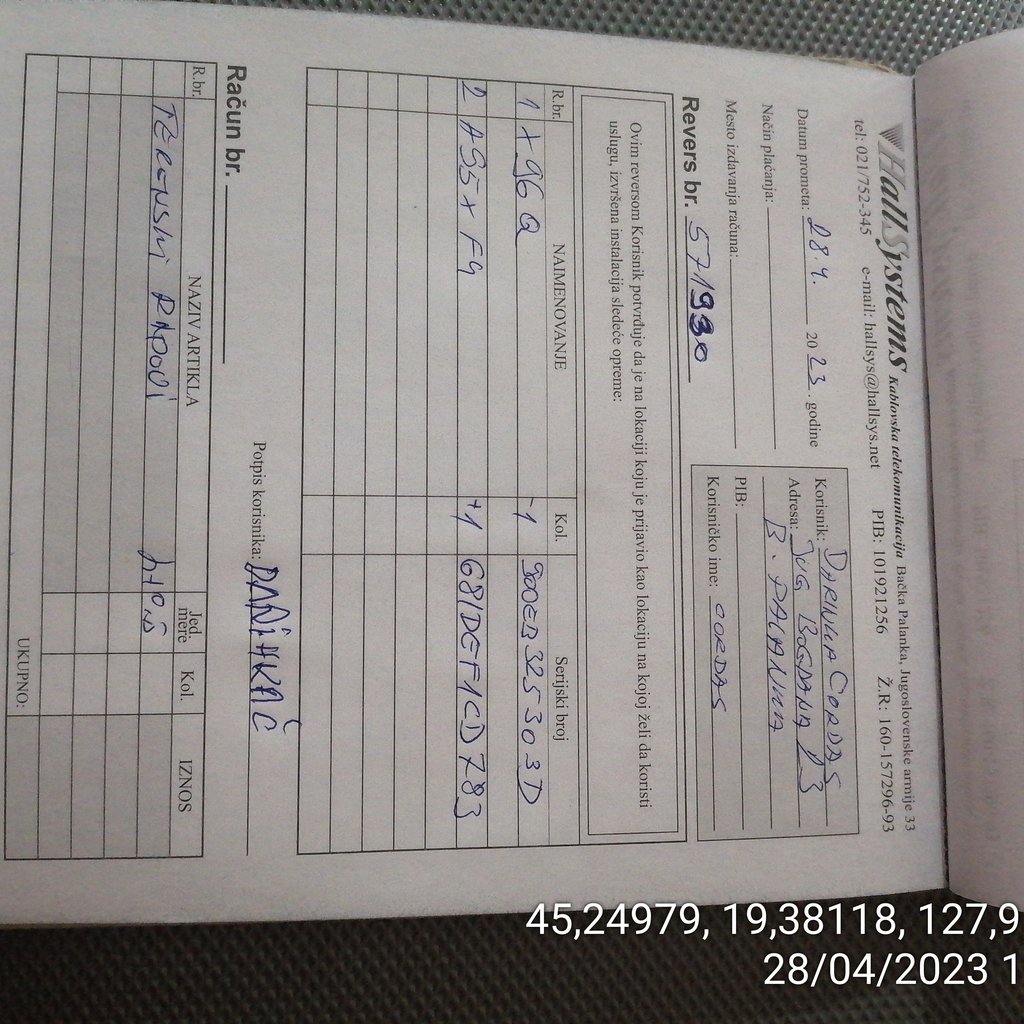 HallSystems Kablovska telekomunikacija Bačka Palanka, Jugoslovenske armije 33
tel: 021/752-345 e-mail: hallsys@hallsys.net PIB: 101921256 Ž.R: 160-157296-93
Datum prometa: 28.4. 20 23. godine
Način plaćanja:
Mesto izdavanja računa:
Korisnik: DARINKA CORDAS
Adresa: JUG BOGDANA
B. PALANKA
PIB:
Korisničko ime: CORDAS
Revers br. 571930
Ovim reversom Korisnik potvrđuje da je na lokaciji koju je prijavio kao lokaciju na kojoj želi da koristi
uslugu, izvršena instalacija sledeće opreme:
R.br. NAIMENOVANJE Kol. Serijski broj
1 X96Q -1 90OEB325303D
2 A95X F4 +1 681DEF1CD783
Potpis korisnika:
Račun br.
R.br. NAZIV ARTIKLA Jed. mere Kol. IZNOS
TERENSKI RADOVI
UKUPNO:
45,24979, 19,38118, 127,9
28/04/2023 1